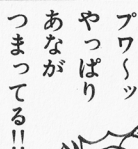 プワ～ッ
やっぱり
あなが
つまってる!!